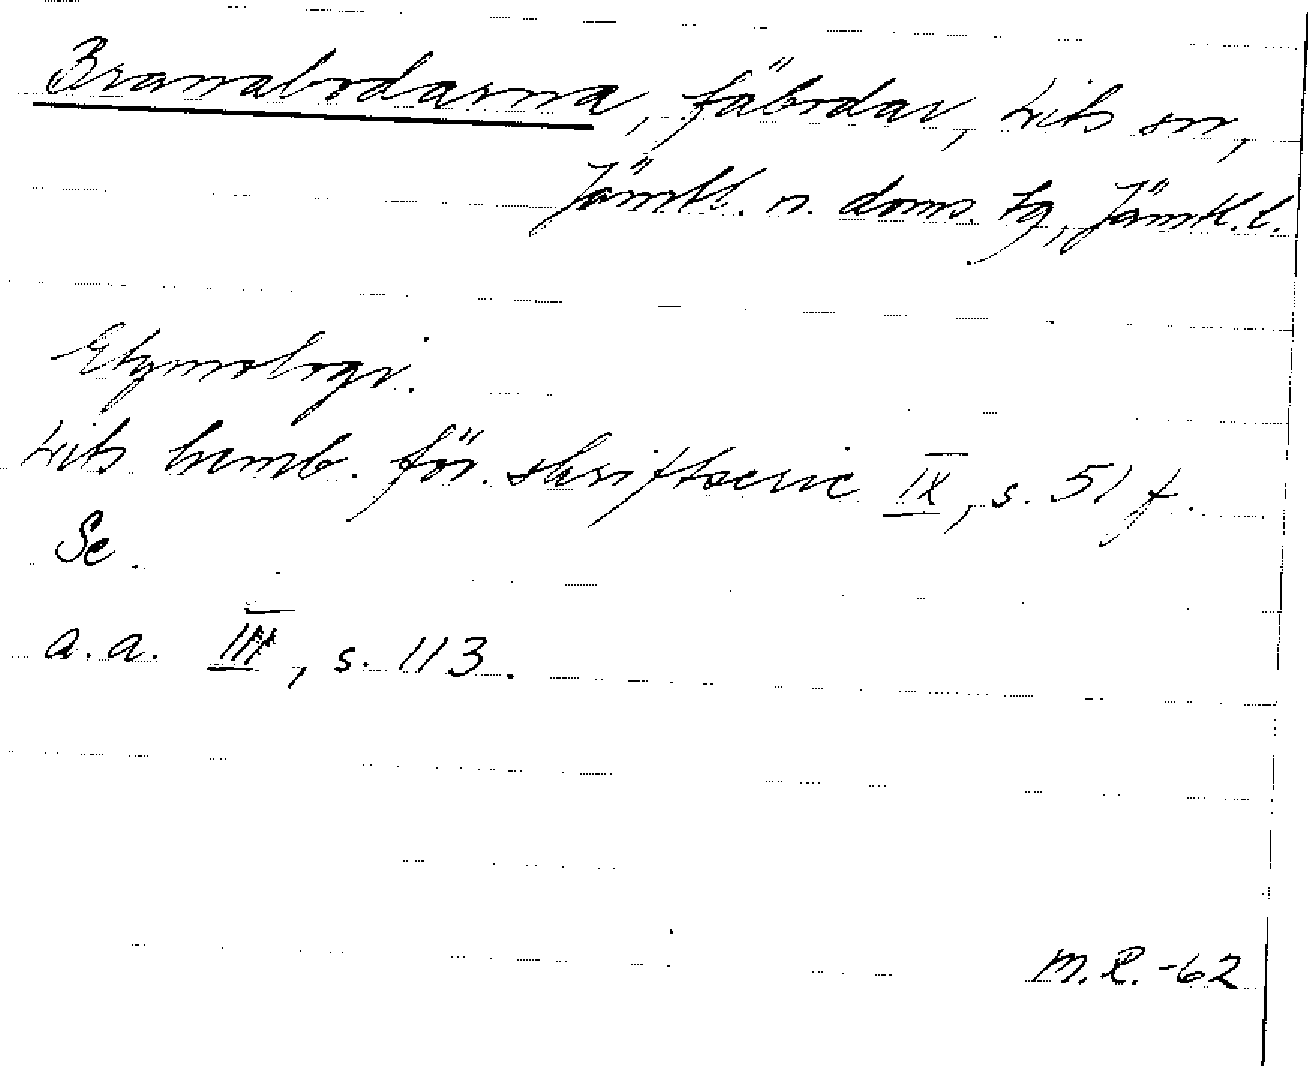 Brannabodarna, fäbodar, Lits sn,
Jämtl. n. doms. tg, Jämtl. l.
Etymologi.
Lits hemb. för. skriftserie IX, s. 51 f.
Se.
a.a. III, s. 113.
M.R.-62